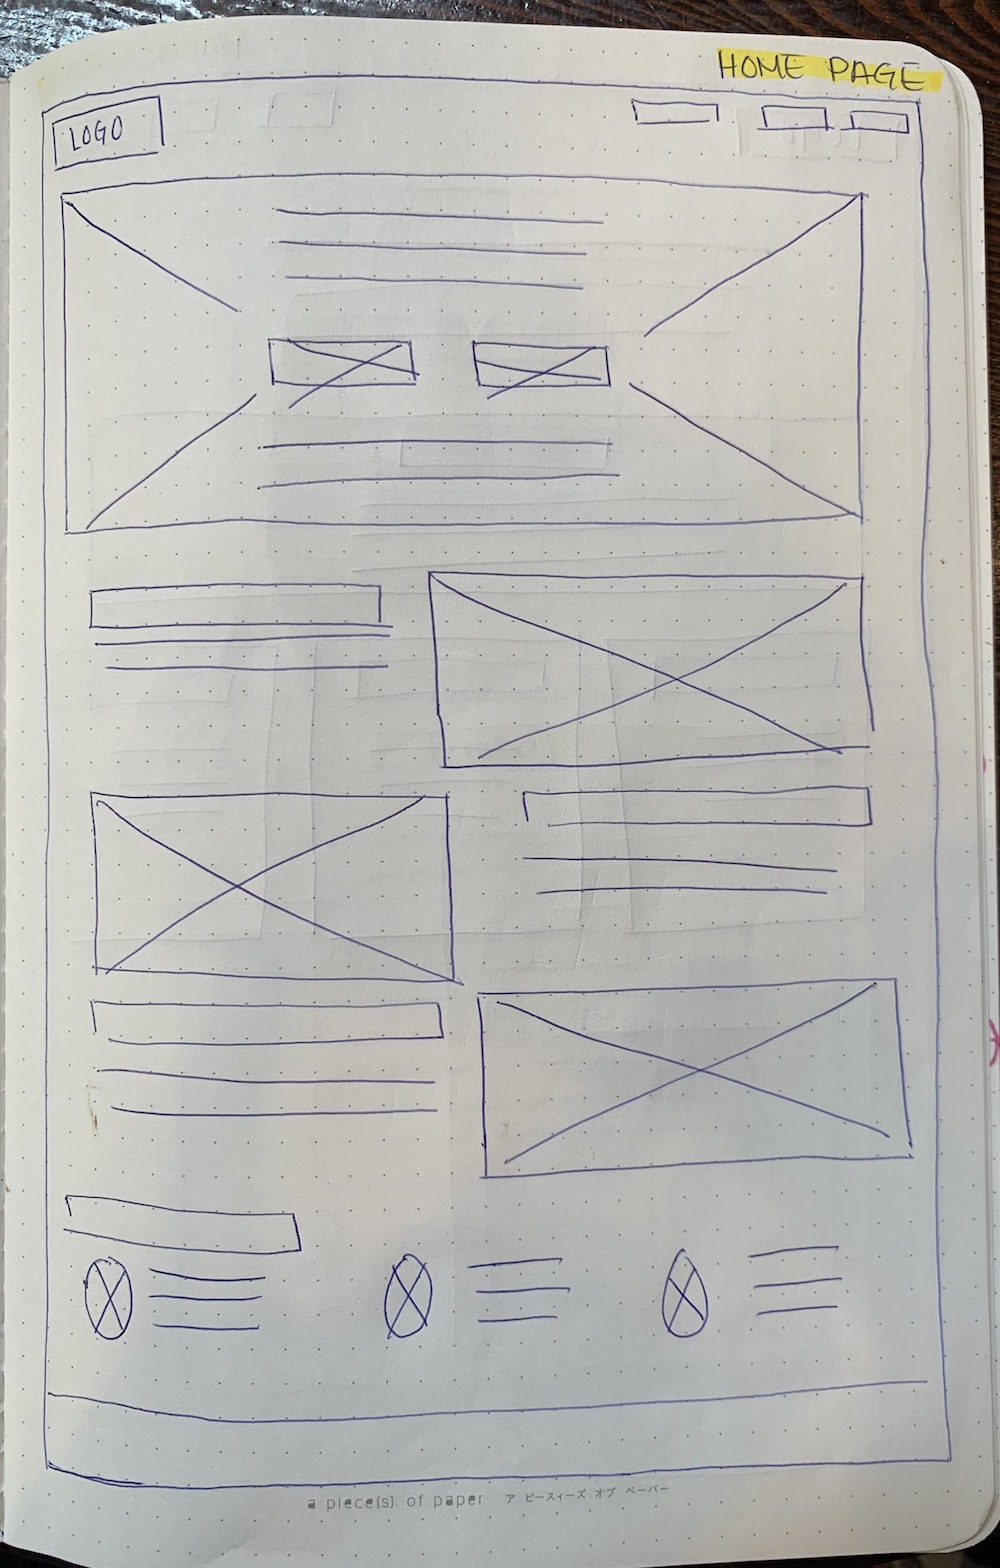 HOME PAGE
LOGO
a piece(s) of paper ア ピースィーズ オブ ペーパー